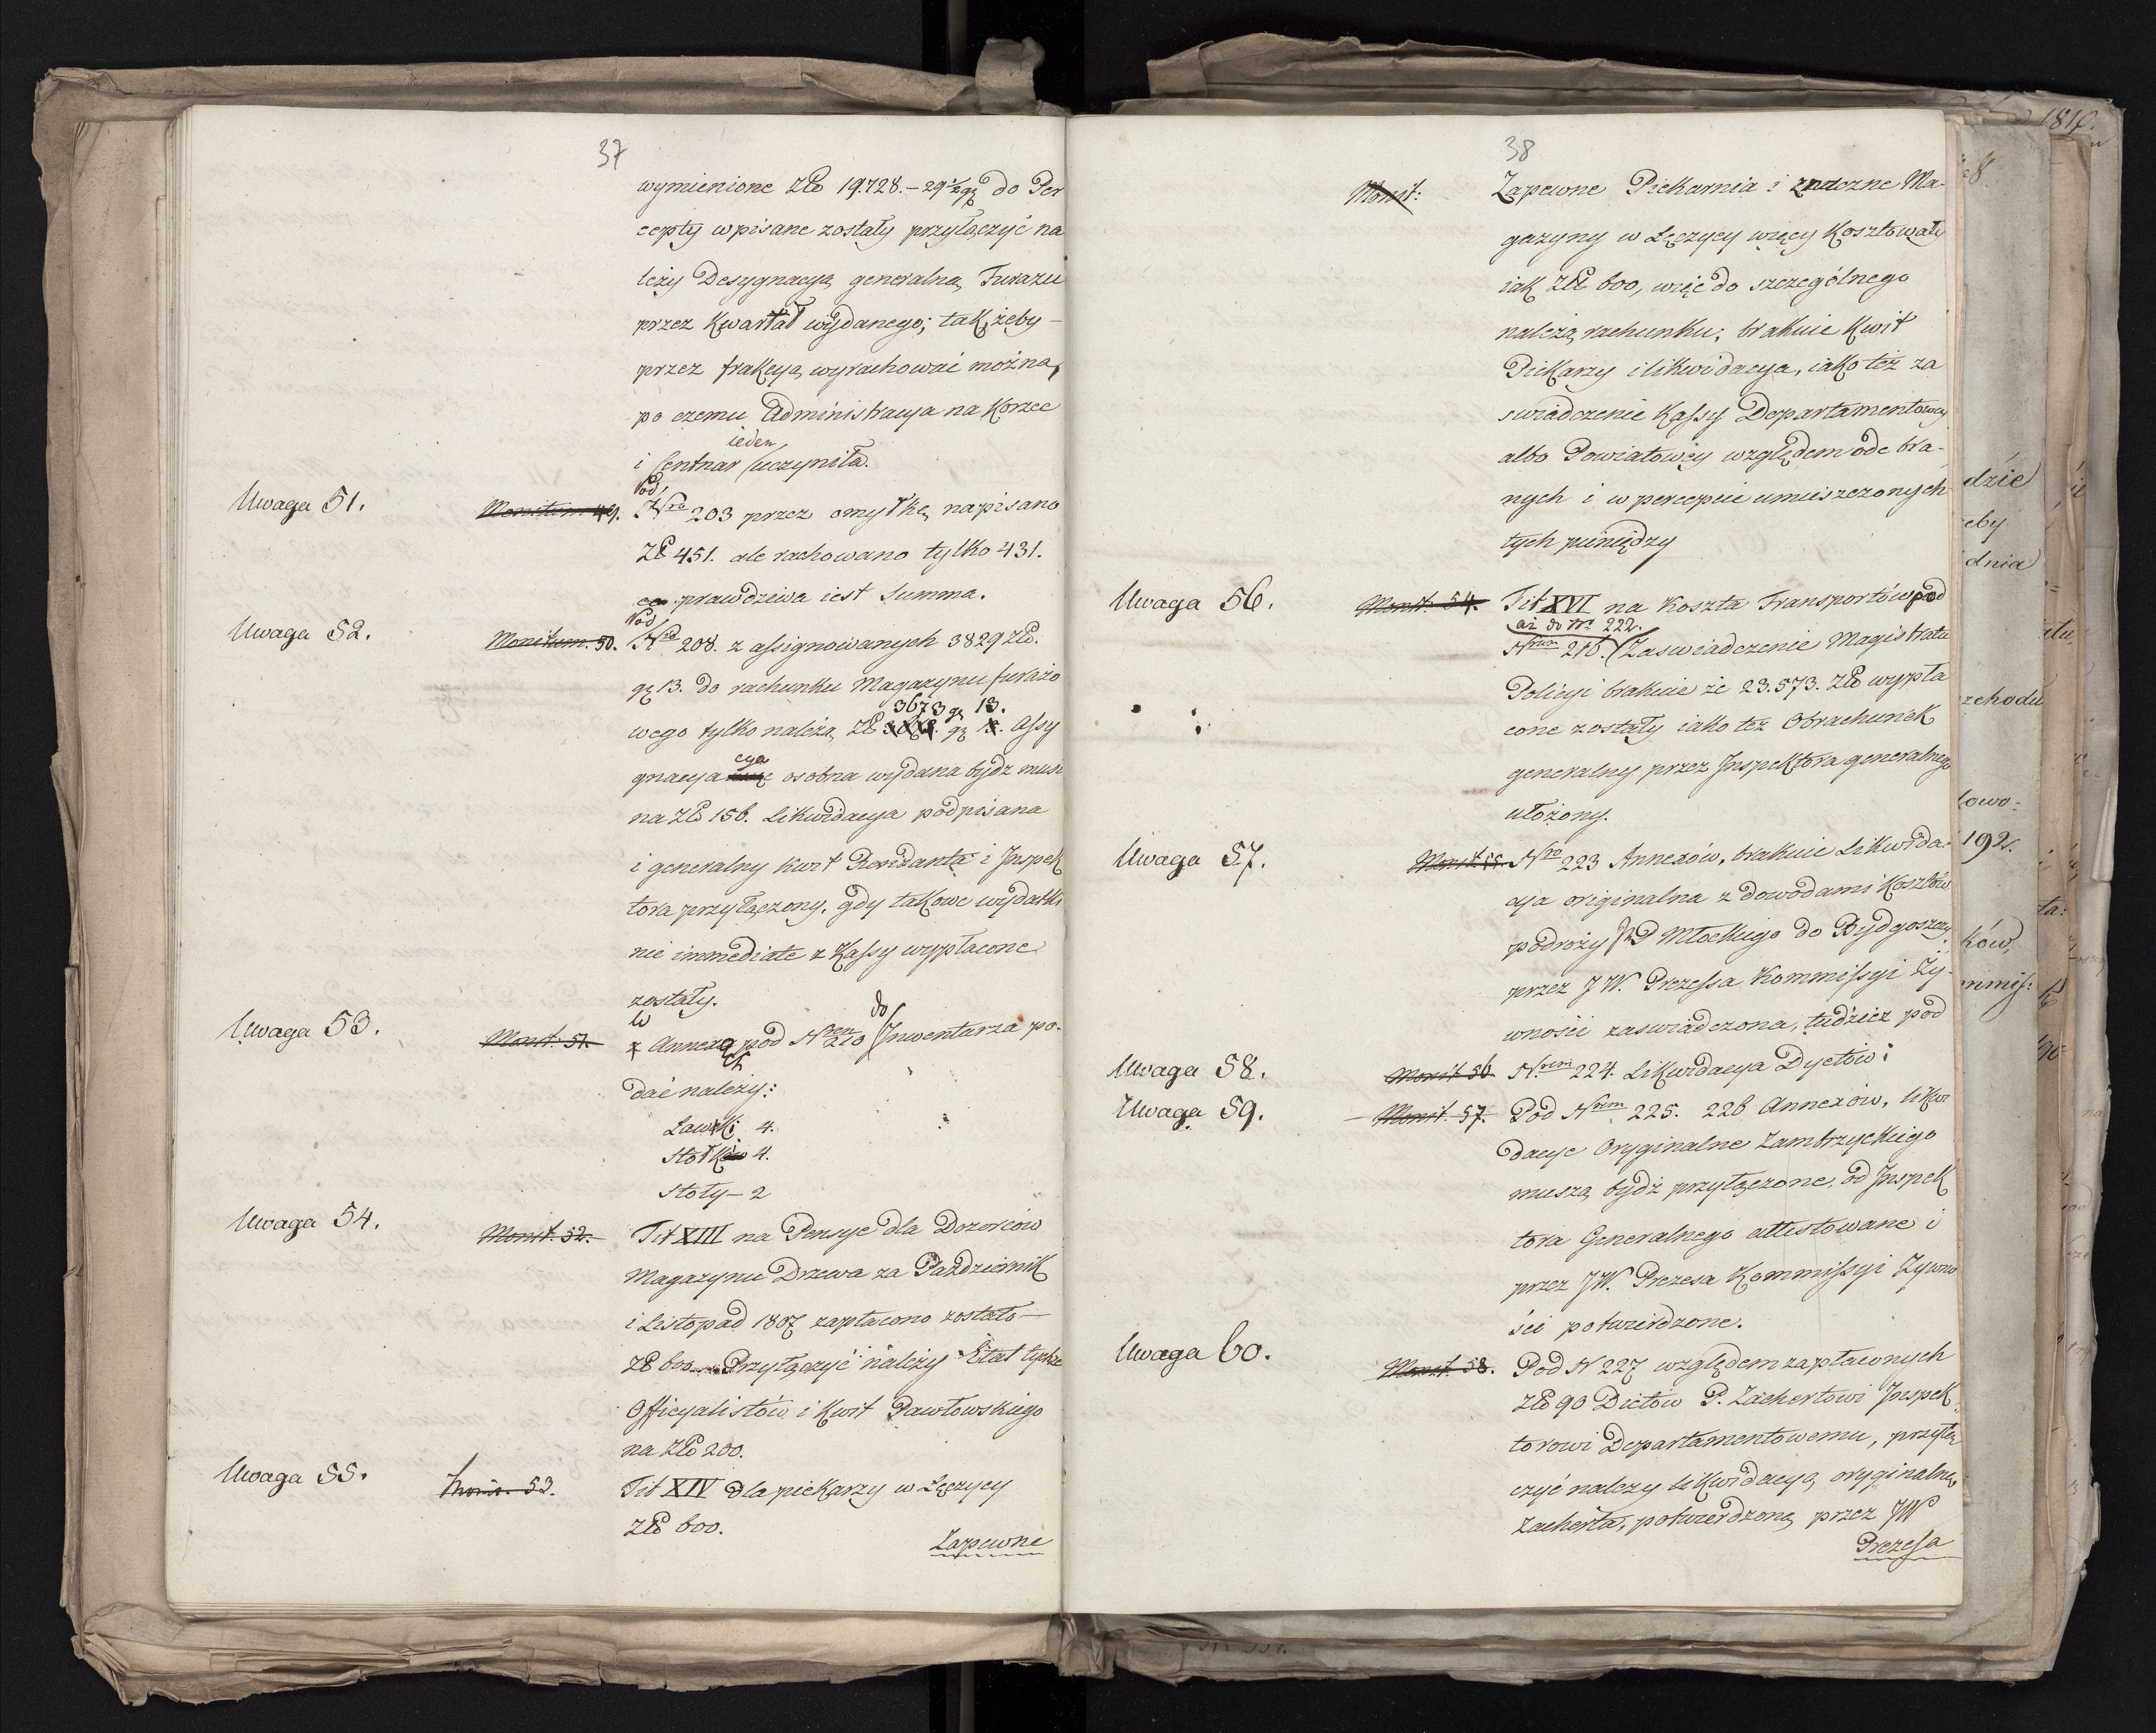 37
wymienione Złł 19.728.–29½ gr do Per
cepty wpisane zostały przyłączyć na
leży Desygnacyą generalną Furazu
przez Kwartał wydanego; tak, żeby –
przez frakcyą wyrachować można,
po czemu Administracya na Korzec
ieden
i Centnar uczyniła.
Uwaga 51. Monitum 49. Pod Nro 203 przez omyłkę napisano
Zł 451. ale rachowano tylko 431.
prawdziwa iest Summa.
Uwaga 52. Monitum. 50. Pod Nro 208. z assignowanych 3829 Złł.
gr 13. do rachunku Magazynu furażo
3673 gr 13.
wego tylko należą Zł gr Assy
cya
gnacya osobna wydana bydź musi
na Złł 156. Likwidacya podpisana
i generalny kwit Rendanta i Inspek
tora przyłączony, gdy takowe wydatki
nie immediate z Kassy wypłacone
zostały.
Uwaga 53. Monit. 51. w Annexach pod Nrem 210 do Inwentarza po-
dać należy:
Ławki 4.
Stołki 4.
Stoły – 2
Uwaga 54. Monit. 52. Tit XIII na Pensye dla Dozorców
Magazynu Drzewa za Październik
i Listopad 1807 zapłacono zostało –
Zł 600. Przyłączyć należy Etat tychże
Officyalistów i Kwit Pawłowskiego
na Złł 200.
Uwaga 55. Monit. 53. Tit XIV dla piekarzy w Łęczycy
Złł 600.
Zapewne
38
Monit: Zapewne Piekarnia i znaczne Ma-
gazyny w Łęczycy więcy Kosztowały
iak Złł 600, więc do szczególnego
należą rachunku; brakuie Kwit
Piekarzy i likwidacya, iako też za
swiadczenie Kassy Departamentowey
albo Powiatowéy względem ode bra-
nych i w percepcie umieszczonych
tych pieniędzy
Uwaga 56. Monit. 54. Tit XVI na Koszta Transportów pod
aż do Nr 222.
Nrem 216. Zaswiadczenie Magistratu
Policyi brakuie że 23.573. Złł wypła
cone zostały iako też Obrachunek
generalny przez Inspektora generalnego
ułożony.
Uwaga 57. Monit 55. Nro 223 Annexów, brakuie Likwida-
cya originalna z dowodami Kosztów
podroży JP Młockiego do Bydgoszczy,
przez J W. Prezessa Kommissyi Ży-
wności zaswiadczona, tudzież pod
Uwaga 58. Monit 56. Nrem 224. Likwidacya Dyetów:
Uwaga 59. Monit 57. Pod Nrem 225. 226 Annexów, likwi
dacye Oryginalne Zambrzyckiego
muszą bydź przyłączone, od Inspek
tora Generalnego attestowane i
przez JW. Prezesa Kommissyi Żywno
ści potwierdzone.
Uwaga 60. Monit. 58. Pod N 227 względem zapłaconych
Złł 90 Dietów P. Zachertowi Inspek-
torowi Departamentowemu, przyłą
czyć należy likwidacyą oryginalną
Zacherta, potwierdzoną przez JW
Prezessa
dzie
eby
dnia
zchodu
192.
ków,